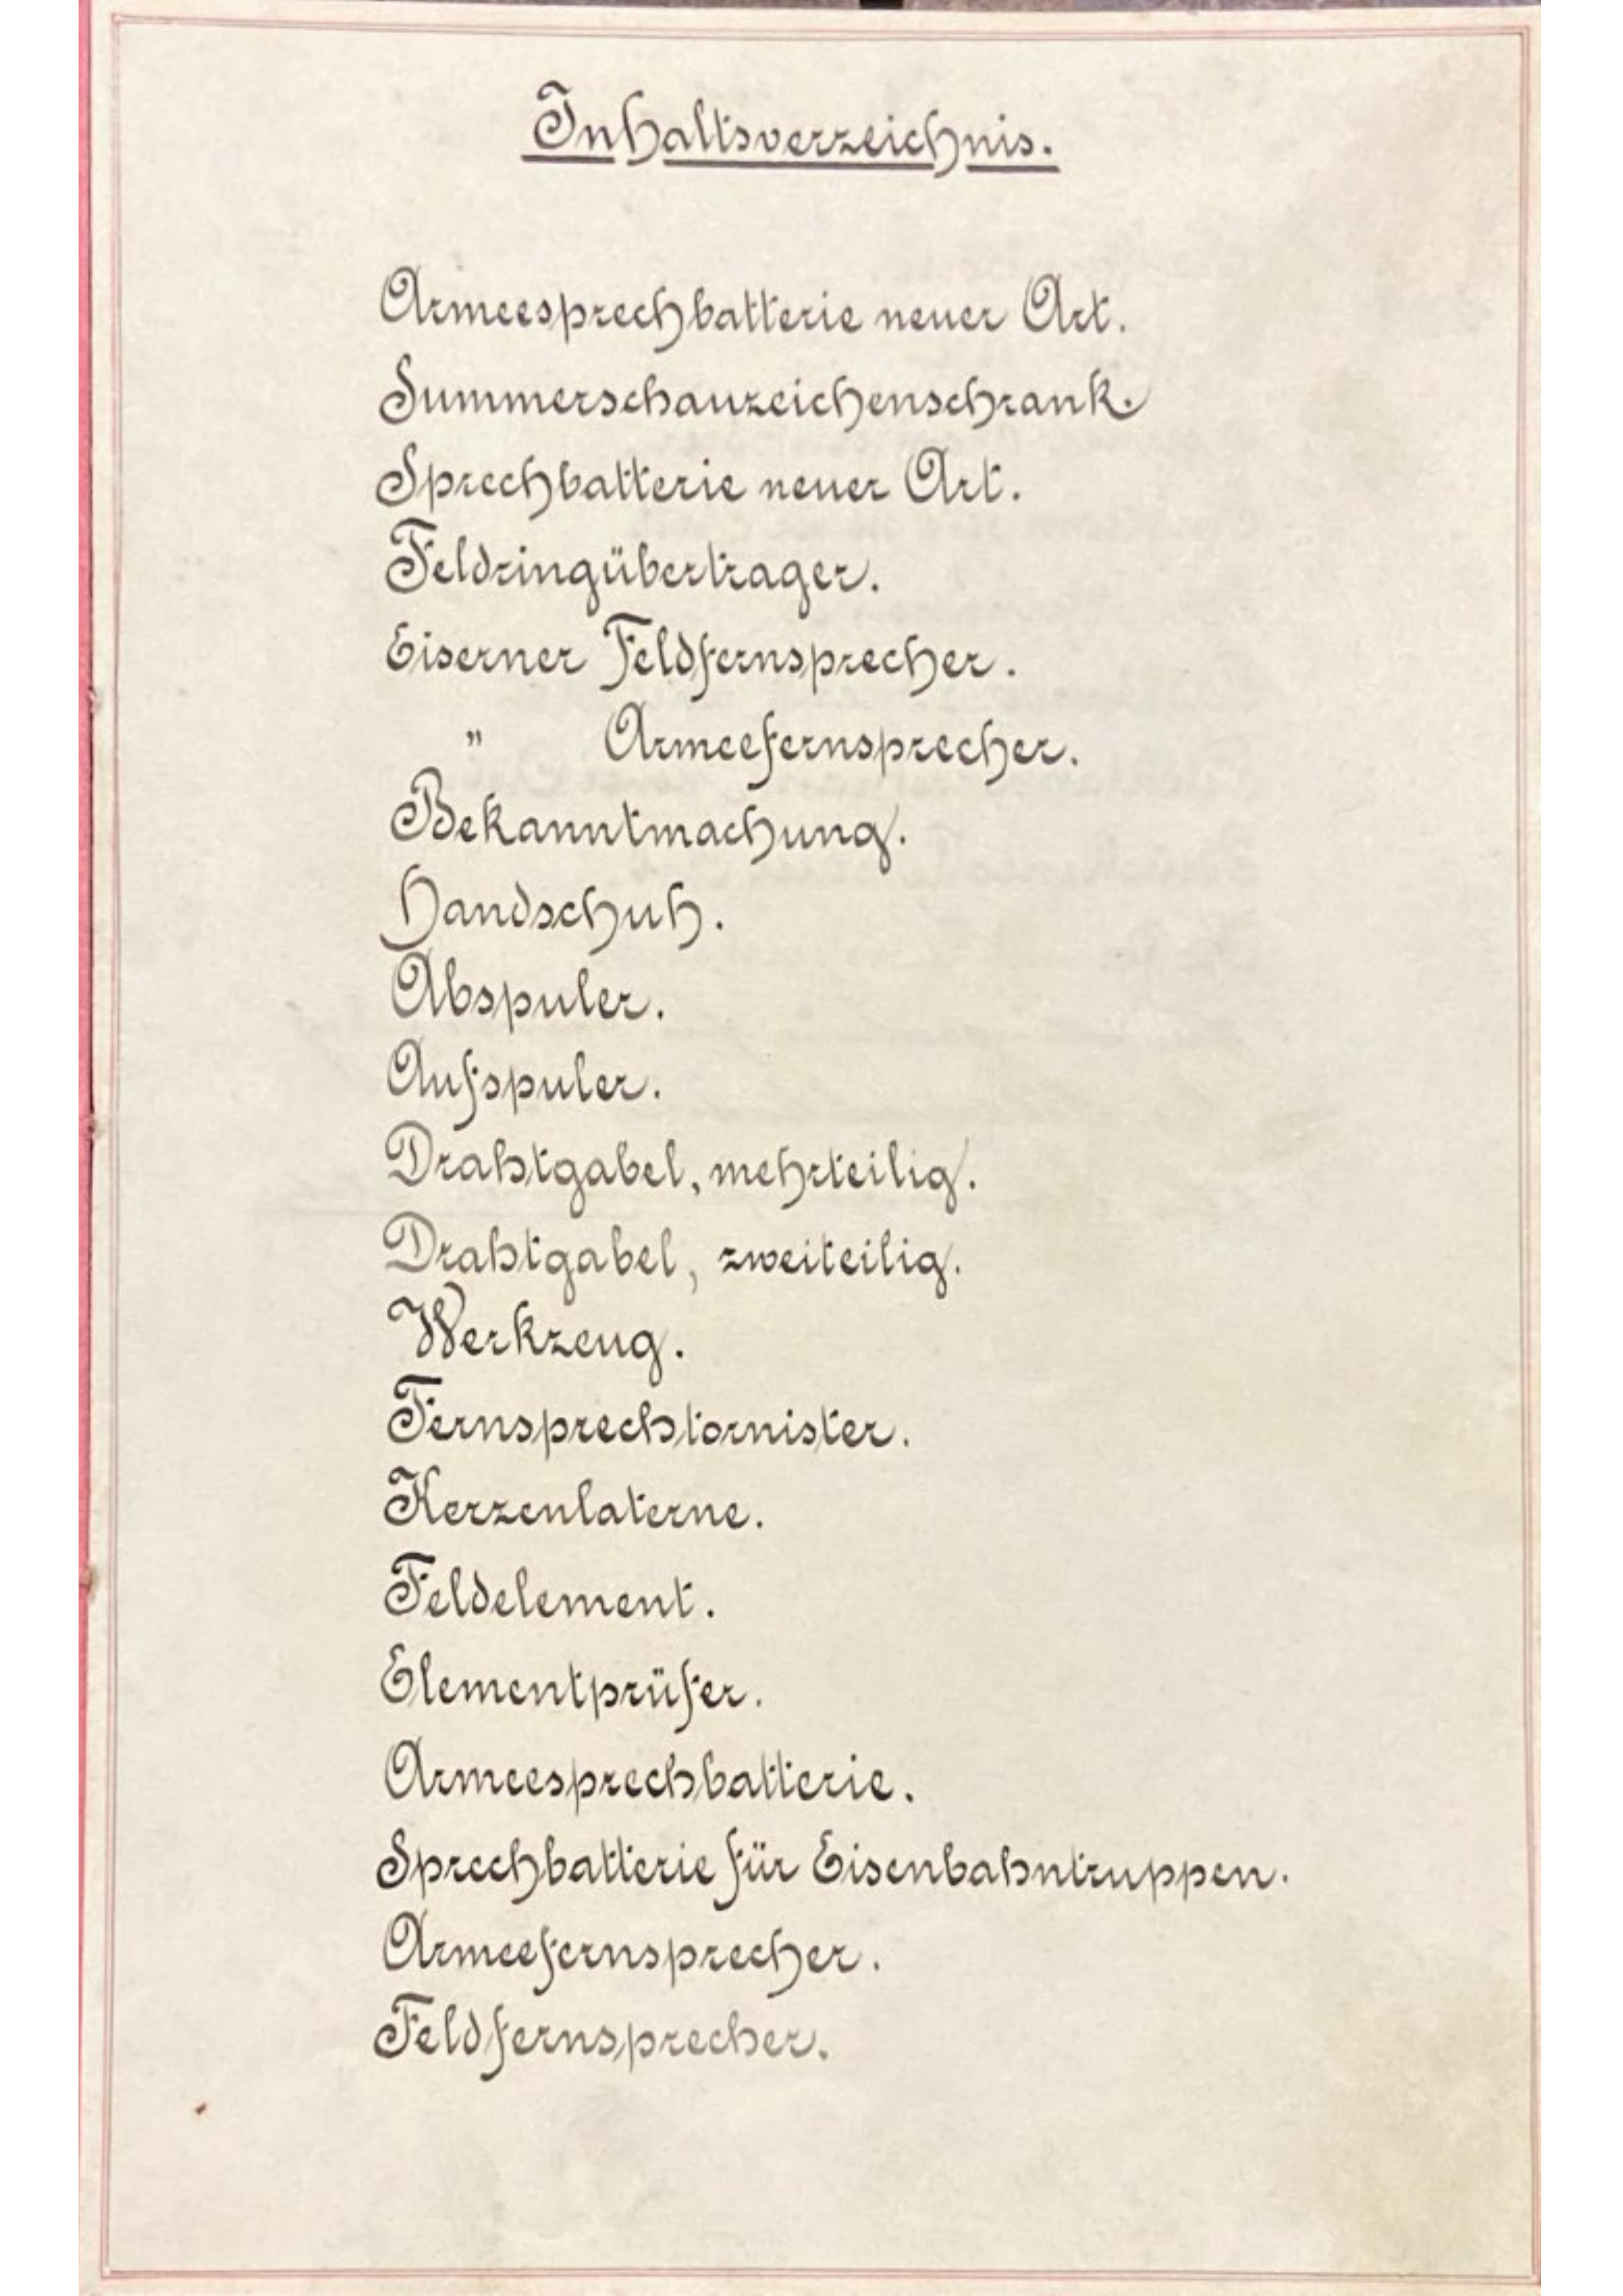 Inhaltsverzeichnis.
Armeesprechbatterie neuer Art.
Summerschauzeichenschrank.
Sprechbatterie neuer Art.
Feldringübertrager.
Eiserner Feldfernsprecher.
" Armeefernsprecher.
Bekanntmachung.
Handschuh.
Abspuler.
Aufspuler.
Drahtgabel, mehrteilig.
Drahtgabel, zweiteilig.
Werkzeug.
Fernsprechtornister.
Kerzenlaterne.
Feldelement.
Elementprüfer.
Armeesprechbatterie.
Sprechbatterie für Eisenbahntruppen.
Armeefernsprecher.
Feldfernsprecher.